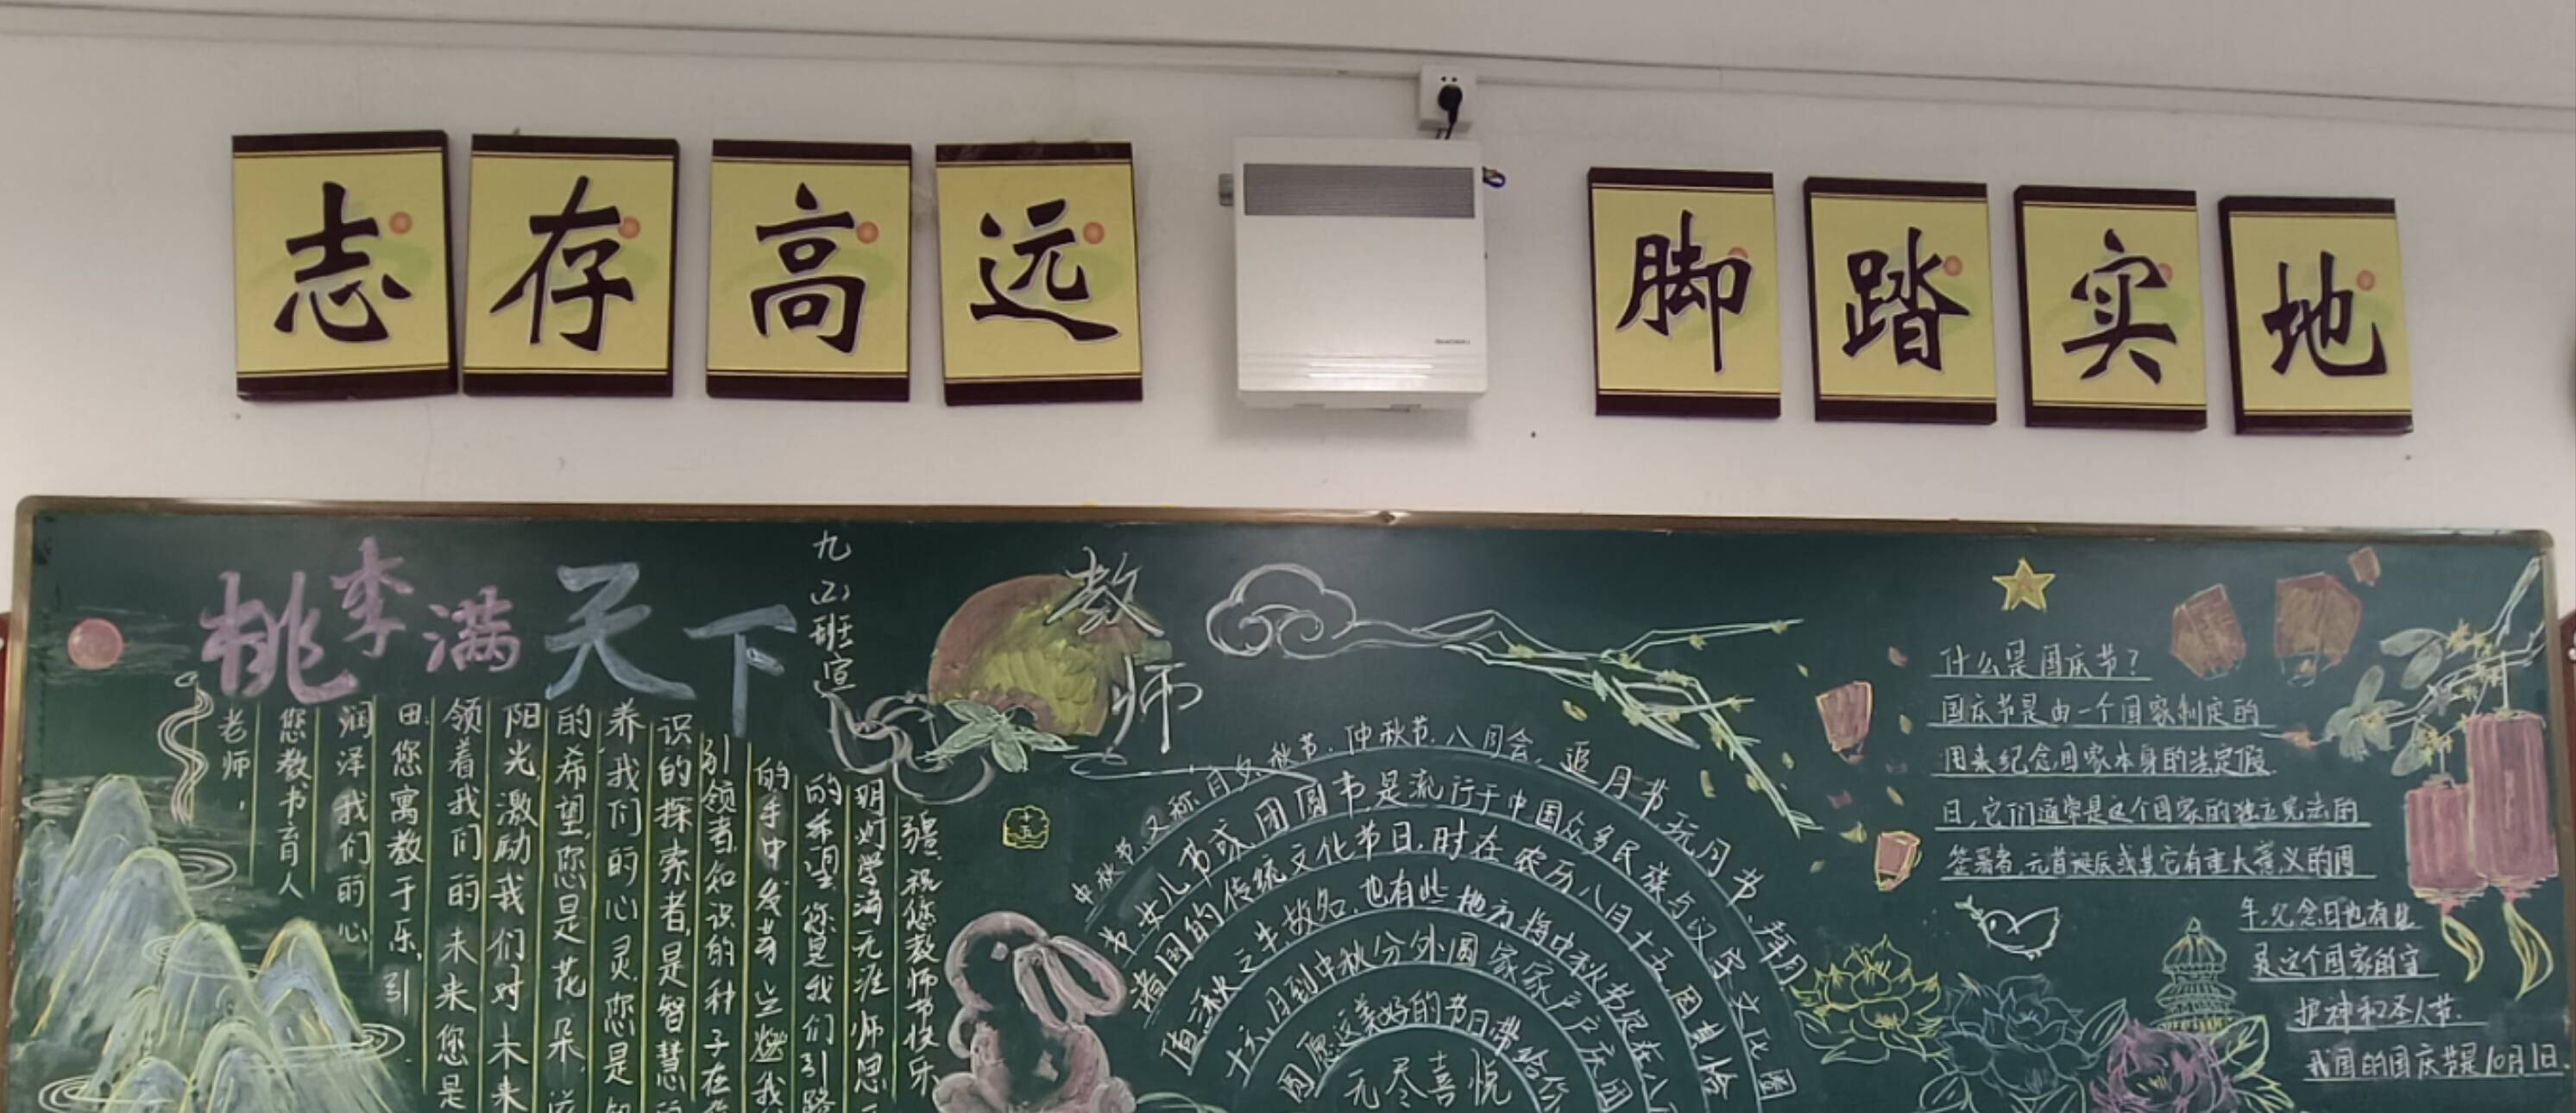 志存高远
脚踏实地
桃李满天下
九(2)班宣
教师
老师,
您教书育人
润泽我们的心
田,您寓教于乐,引
领着我们的未来您是
阳光,激励我们对未来
的希望,您是花朵,滋
养我们的心灵,您是知
识的探索者,是智慧
引领者,知识的种子在
的手中发芽
的希望,您是我们引路
明灯学海无涯师恩
疆,祝您教师节快乐
十五
中秋节,又称月夕、秋节、仲秋节、八月会、追月节、玩月节、拜月
节、女儿节或团圆节,是流行于中国众多民族与汉字文化圈
诸国的传统文化节日,时在农历八月十五,因其恰
值三秋之半,故名,也有些地方将中秋节定在八
十六,月到中秋分外圆,家家户户庆团
圆,愿这美好的节日带给你
无尽喜悦
什么是国庆节?
国庆节是由一个国家制定的
用来纪念国家本身的法定假
日,它们通常是这个国家的独立,宪法的
签署者,元首诞辰或其它有重大意义的周
年,纪念日也有些
是这个国家的守
护神和圣人节.
我国的国庆节是10月1日.